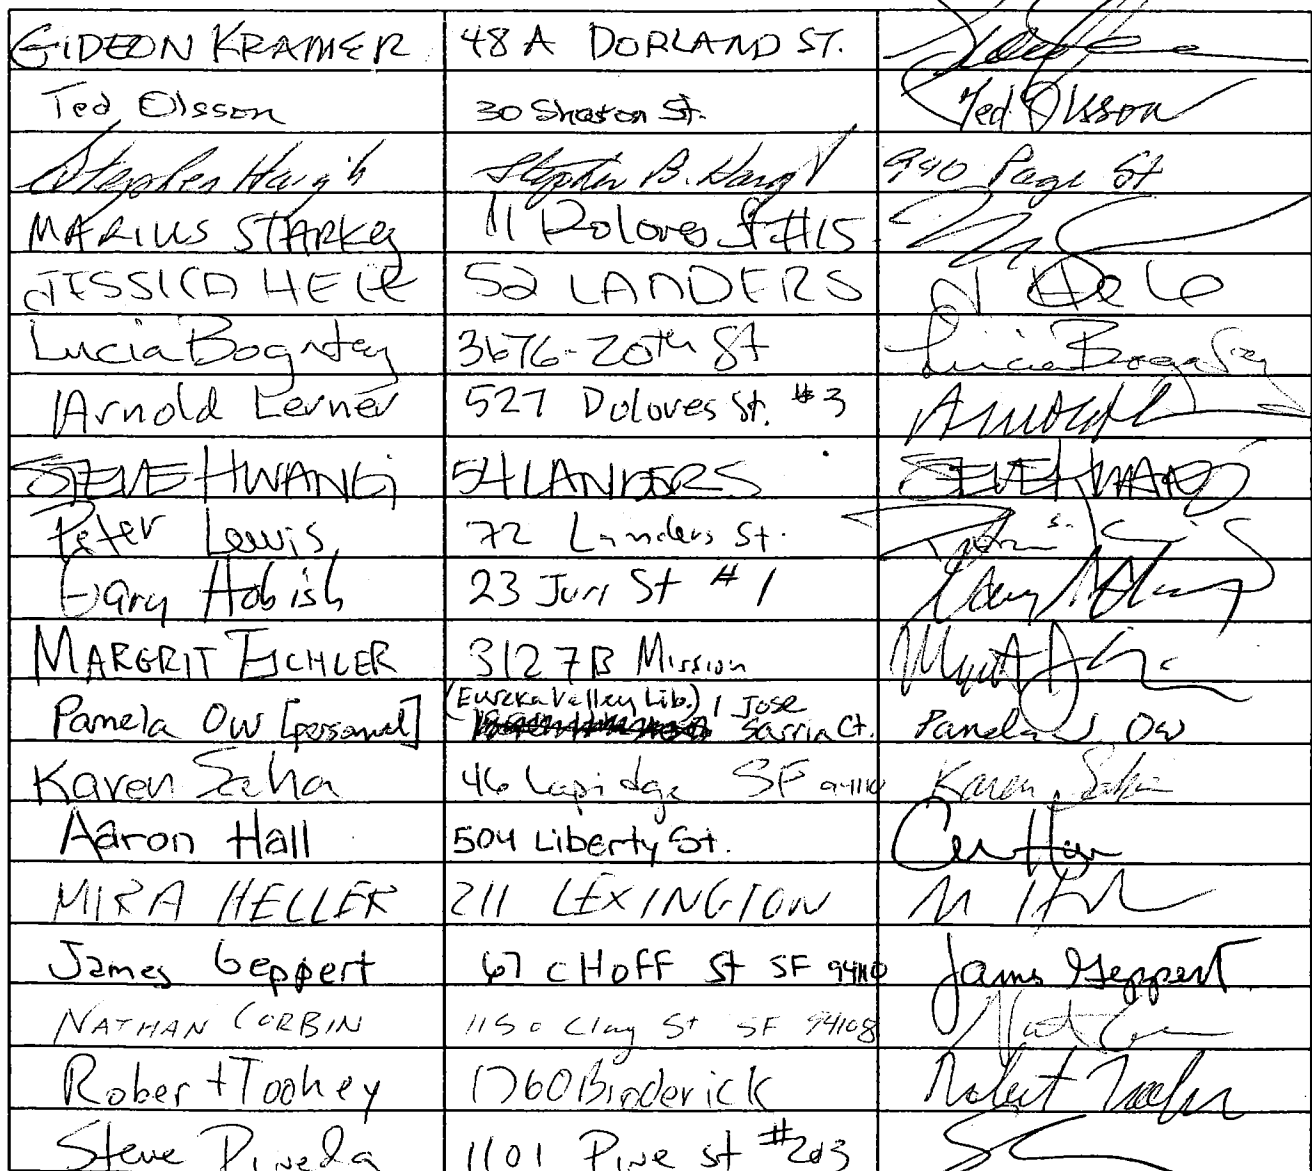 GIDEON KRAMER 48 A DORLAND ST.
Ted Olsson 30 Sharon St. Ted Olsson
Stephen Haigh Stephen B. Haigh 940 Page St
MARIUS STARKEY 11 Dolores St #15
JESSICA HELE 52 LANDERS J Hele
Lucia Bogatay 3676-20th St Lucia Bogatay
Arnold Lerner 527 Dolores St. #3 Arnold
STEVE HWANG 54 LANDERS STEVE HWANG
Peter Lewis 72 Landers St.
Gary Hobish 23 Juri St #1
MARGRIT EICHLER 3127B Mission
Pamela Ow [personal] (Eureka Valley Lib.) 1 Jose Sarria Ct. Pamela Ow
Karen Saha 46 Lapidge SF 94110 Karen Saha
Aaron Hall 504 Liberty St.
MIRA HELLER 211 LEXINGTON
James Geppert 67 c HOFF St SF 94110 James Geppert
NATHAN CORBIN 1150 Clay St SF 94108
Robert Toohey 1760 Broderick Robert
Steve Pineda 1101 Pine st #203